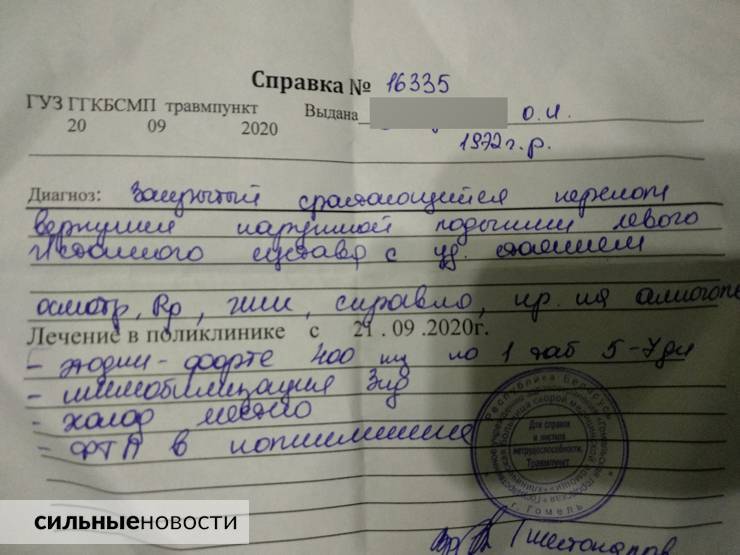 Справка № 16335
ГУЗ ГГКБСМП травмпункт Выдана о.и.
20 09 2020 1972 г.р.
Диагноз: Закрытый срастающийся перелом
верхушки наружной лодыжки левого
голеностопного сустава с уд. стоянием
осмотр, Rр, гип, справка, пр. на
Лечение в поликлинике с 21.09.2020г.
- этодин-форте 400 мг по 1 таб 5-7 дн
- иммобилизация 3нд
- холод местно
- ФТЛ в поликлинике
Республика Беларусь
Для справок
и листков
нетрудоспособности.
Травмпункт
г. Гомель
СИЛЬНЫЕНОВОСТИ